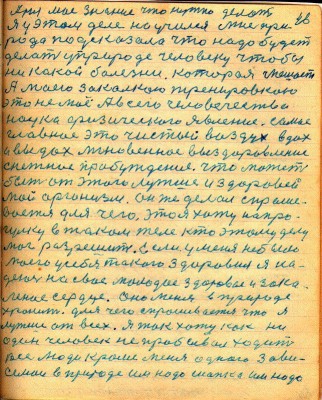 Ану мое знание что нужно делать
Я у этом деле научился мне при-
рода подсказала что надо будет
делать у природе человеку чтобы
никакой болезни. которая мешает
А моего закалкою тренировкою
это не мой А всего человечества
наука физического явление. самое
главное это чистый воздух вдох
и выдох мгновенное выздоровление
снежное пробуждение. что может
быть от этого лутше и здоровей
мой организм. он же делал спраши-
вается для чего. это я хожу на про-
гулку в таком теле кто этому делу
мог разрешит. Если у меня не было
моего у себя такого здоровия я на-
деюсь на свое молодое здоровое и зака-
леное сердце. Оно меня в природе
хранит. для чего спрашивается что я
лутше от всех. Я так хожу как ни
один человек не пробывал ходит
все люди кроме меня одного Зави-
семы в природе им надо шапка им надо